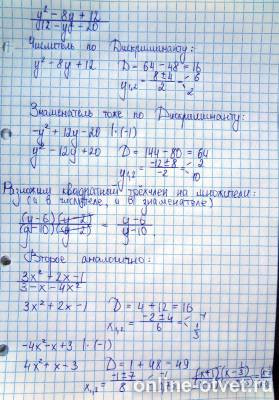 y² - 8y + 12
y12 - y² - 20
Числитель по Дискриминанту:
y² - 8y + 12 D = 64 - 48 = 16
y₁,₂ = 8 ± 4 / 2 = 6
2
Знаменатель тоже по Дискриминанту:
-y² + 12y - 20 | · (-1)
y² - 12y + 20 D = 144 - 80 = 64
y₁,₂ = -12 ± 8 / -2 = 2
10
Разложим квадратный трёхчлен на множители:
(и в числителе, и в знаменателе)
(y-6)(y-2) / (y-10)(y-2) = y-6 / y-10
Второе аналогично:
3x² + 2x - 1
3 - x - 4x²
3x² + 2x - 1 D = 4 + 12 = 16
x₁,₂ = -2 ± 4 / 6 = -1
1/3
-4x² - x + 3 | · (-1)
4x² + x - 3 D = 1 + 48 = 49
x₁,₂ = -1 ± 7 / 8 -1
online-otvet.ru